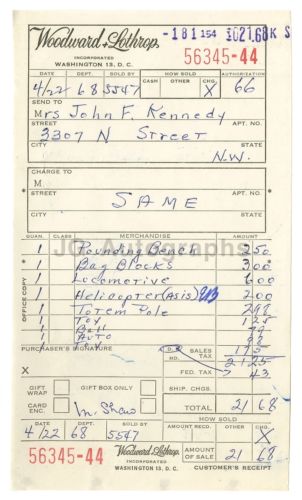 Woodward & Lothrop
INCORPORATED
WASHINGTON 13, D. C.
-181 154 1021.68 K S
56345-44
DATE DEPT. SOLD BY HOW SOLD AUTHORIZATION
CASH OTHER CHG.
4/22 68 5547 X 66
SEND TO
Mrs John F. Kennedy
STREET APT. NO.
3307 N Street
CITY STATE
N.W.
CHARGE TO
M
STREET APT. NO.
SAME
CITY STATE
QUAN. CLASS MERCHANDISE AMOUNT
JG Autographs
OFFICE COPY
1 Pounding Bench 2 50
1 Bag Blocks 3 00
1 Locomotive 6 00
1 Helicopter (Asis) 2 00
1 Totem Pole 2 98
1 Toy 1 25
1 Ball
1 Auto
PURCHASER'S SIGNATURE
D.C. SALES TAX
MD.
21 25
FED. TAX 43
X
GIFT WRAP GIFT BOX ONLY SHIP. CHGS.
CARD ENC. M. Shaw TOTAL 21 68
DATE DEPT. SOLD BY HOW SOLD
CASH OTHER CHG.
4/22 68 5547 X
56345-44
Woodward & Lothrop
INCORPORATED
WASHINGTON 13, D. C.
AMOUNT OF SALE 21 68
CUSTOMER'S RECEIPT